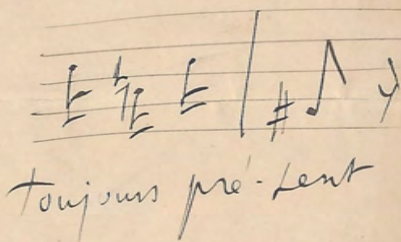 toujours pré-sent